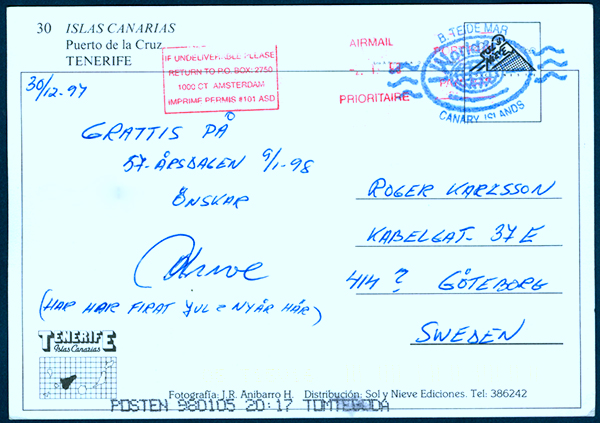 30 ISLAS CANARIAS
Puerto de la Cruz
TENERIFE
IF UNDELIVERABLE PLEASE
RETURN TO P.O. BOX: 2750
1000 CT AMSTERDAM
IMPRIME PERMIS #101 ASD
AIRMAIL
PRIORITAIRE
B. TE. DE MAR
CANARY ISLANDS
30/12-97
GRATTIS PÅ
57-ÅRSDAGEN 9/1-98
ÖNSKAR
(HAR HAR FIRAT JUL & NYÅR HÄR)
ROGER KARLSSON
KABELGAT- 37 E
414 ? GÖTEBORG
SWEDEN
TENERIFE
Islas Canarias
Fotografía: J.R. Anibarro H. Distribución: Sol y Nieve Ediciones. Tel: 386242
POSTEN 980105 20:17 TOMTEBODA